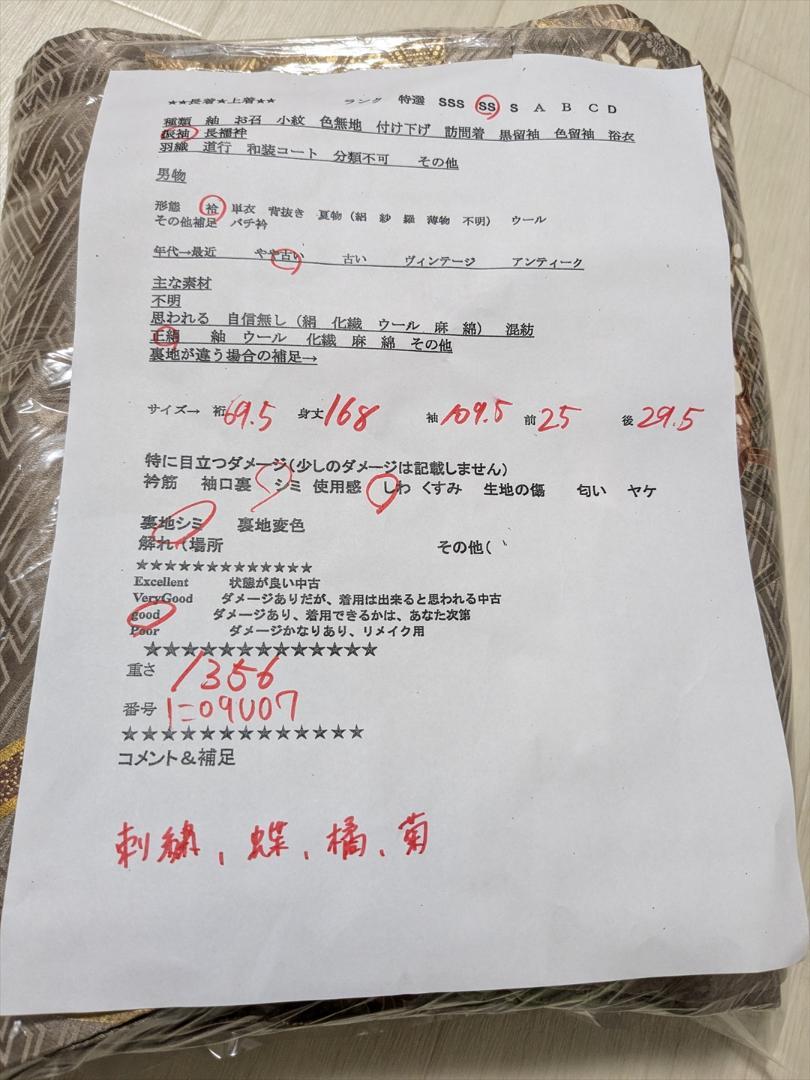 ★★長着★上着★★ ランク 特選 SSS SS S A B C D
種類 紬 お召 小紋 色無地 付け下げ 訪問着 黒留袖 色留袖 浴衣
振袖 長襦袢
羽織 道行 和装コート 分類不可 その他
男物
形態 袷 単衣 背抜き 夏物(絽 紗 羅 薄物 不明) ウール
その他補足 バチ衿
年代→最近 やや古い 古い ヴィンテージ アンティーク
主な素材
不明
思われる 自信無し(絹 化繊 ウール 麻 綿) 混紡
正絹 紬 ウール 化繊 麻 綿 その他
裏地が違う場合の補足→
サイズ→ 裄69.5 身丈168 袖109.5 前25 後29.5
特に目立つダメージ(少しのダメージは記載しません)
衿筋 袖口裏 シミ 使用感 しわ くすみ 生地の傷 匂い ヤケ
裏地シミ 裏地変色
解れ(場所 その他(
★★★★★★★★★★★★★
Excellent 状態が良い中古
VeryGood ダメージありだが、着用は出来ると思われる中古
good ダメージあり、着用できるかは、あなた次第
Poor ダメージかなりあり、リメイク用
★★★★★★★★★★★★★
重さ 1356
番号 1ニ09U07
★★★★★★★★★★★★★
コメント&補足
刺繍、蝶、橘、菊